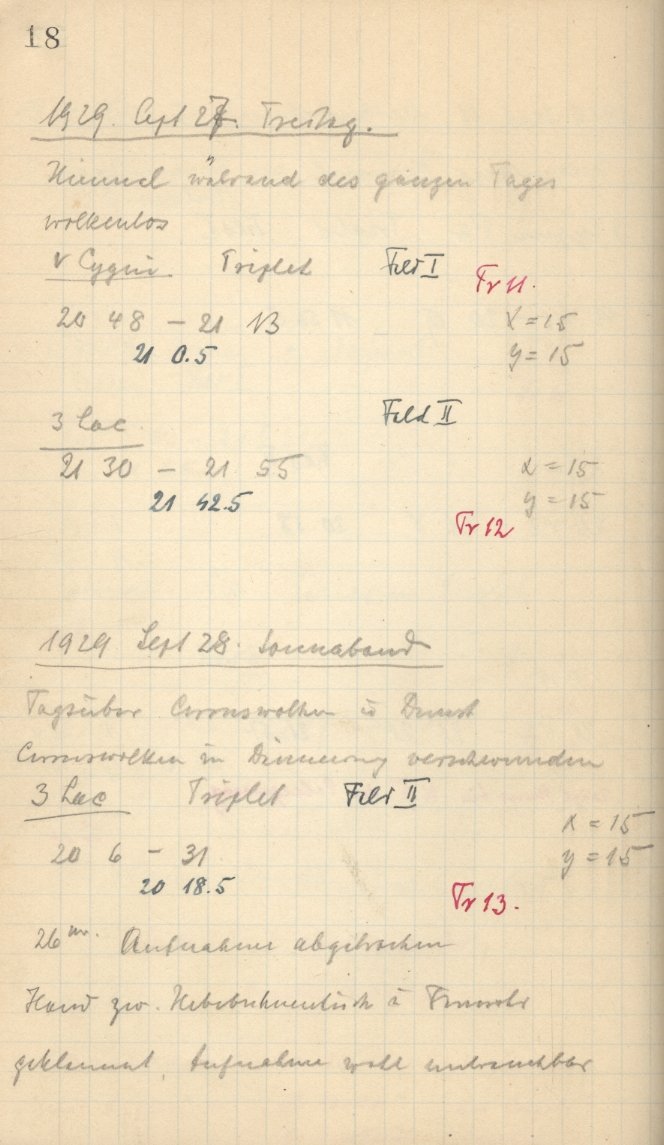 18
1929. Sept 27. Freitag.
Himmel während des ganzen Tages
wolkenlos
ν Cygni Triplet Feld I Tr 11.
20 48 – 21 13 x = 15
21 0.5 y = 15
3 Lac Feld II
21 30 – 21 55 x = 15
21 42.5 y = 15
Tr 12
1929 Sept 28. Sonnabend
Tagsüber Cirruswolken u Dunst
Cirruswolken in Dämmerung verschwunden
3 Lac Triplet Feld II
x = 15
20 6 – 31 y = 15
20 18.5 Tr 13.
26 Aufnahme abgebrochen
Hand zw. u Fernrohr
geklemmt, Aufnahme wohl unbrauchbar